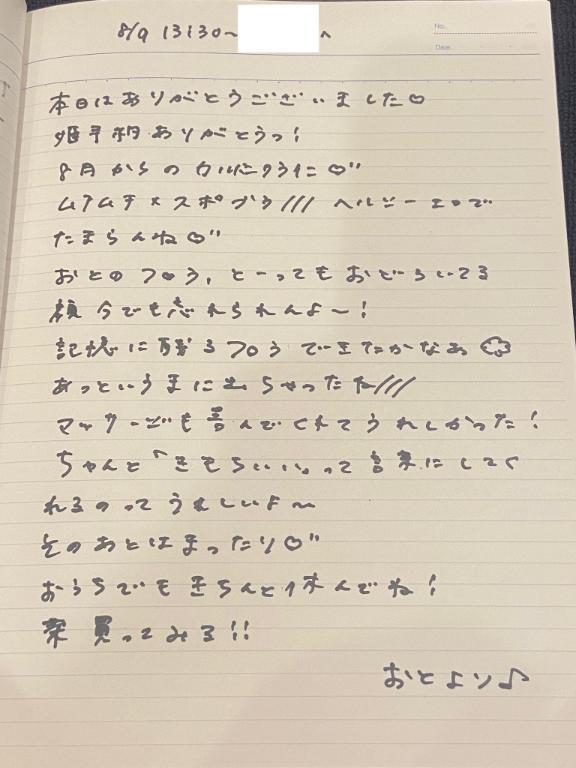 8/9 13:30〜 へ
No.
Date
本日はありがとうございました♡
姫予約ありがとうっ!
8月からの
ムチムチ×スポブラ/// ヘルシーエロで
たまらんね♡"
おとのフロう、とーってもおどろいてる
顔今でも忘れられんよ〜!
記憶に残るフロうできたかなぁ
あっというまに出ちゃったね///
マッサージも喜んでくれてうれしかった!
ちゃんと「きもちいい」って言葉にしてく
れるのってうれしいよ〜
そのあとはまったり♡"
おうちでもきちんと休んでね!
買ってみる!!
おとより♪